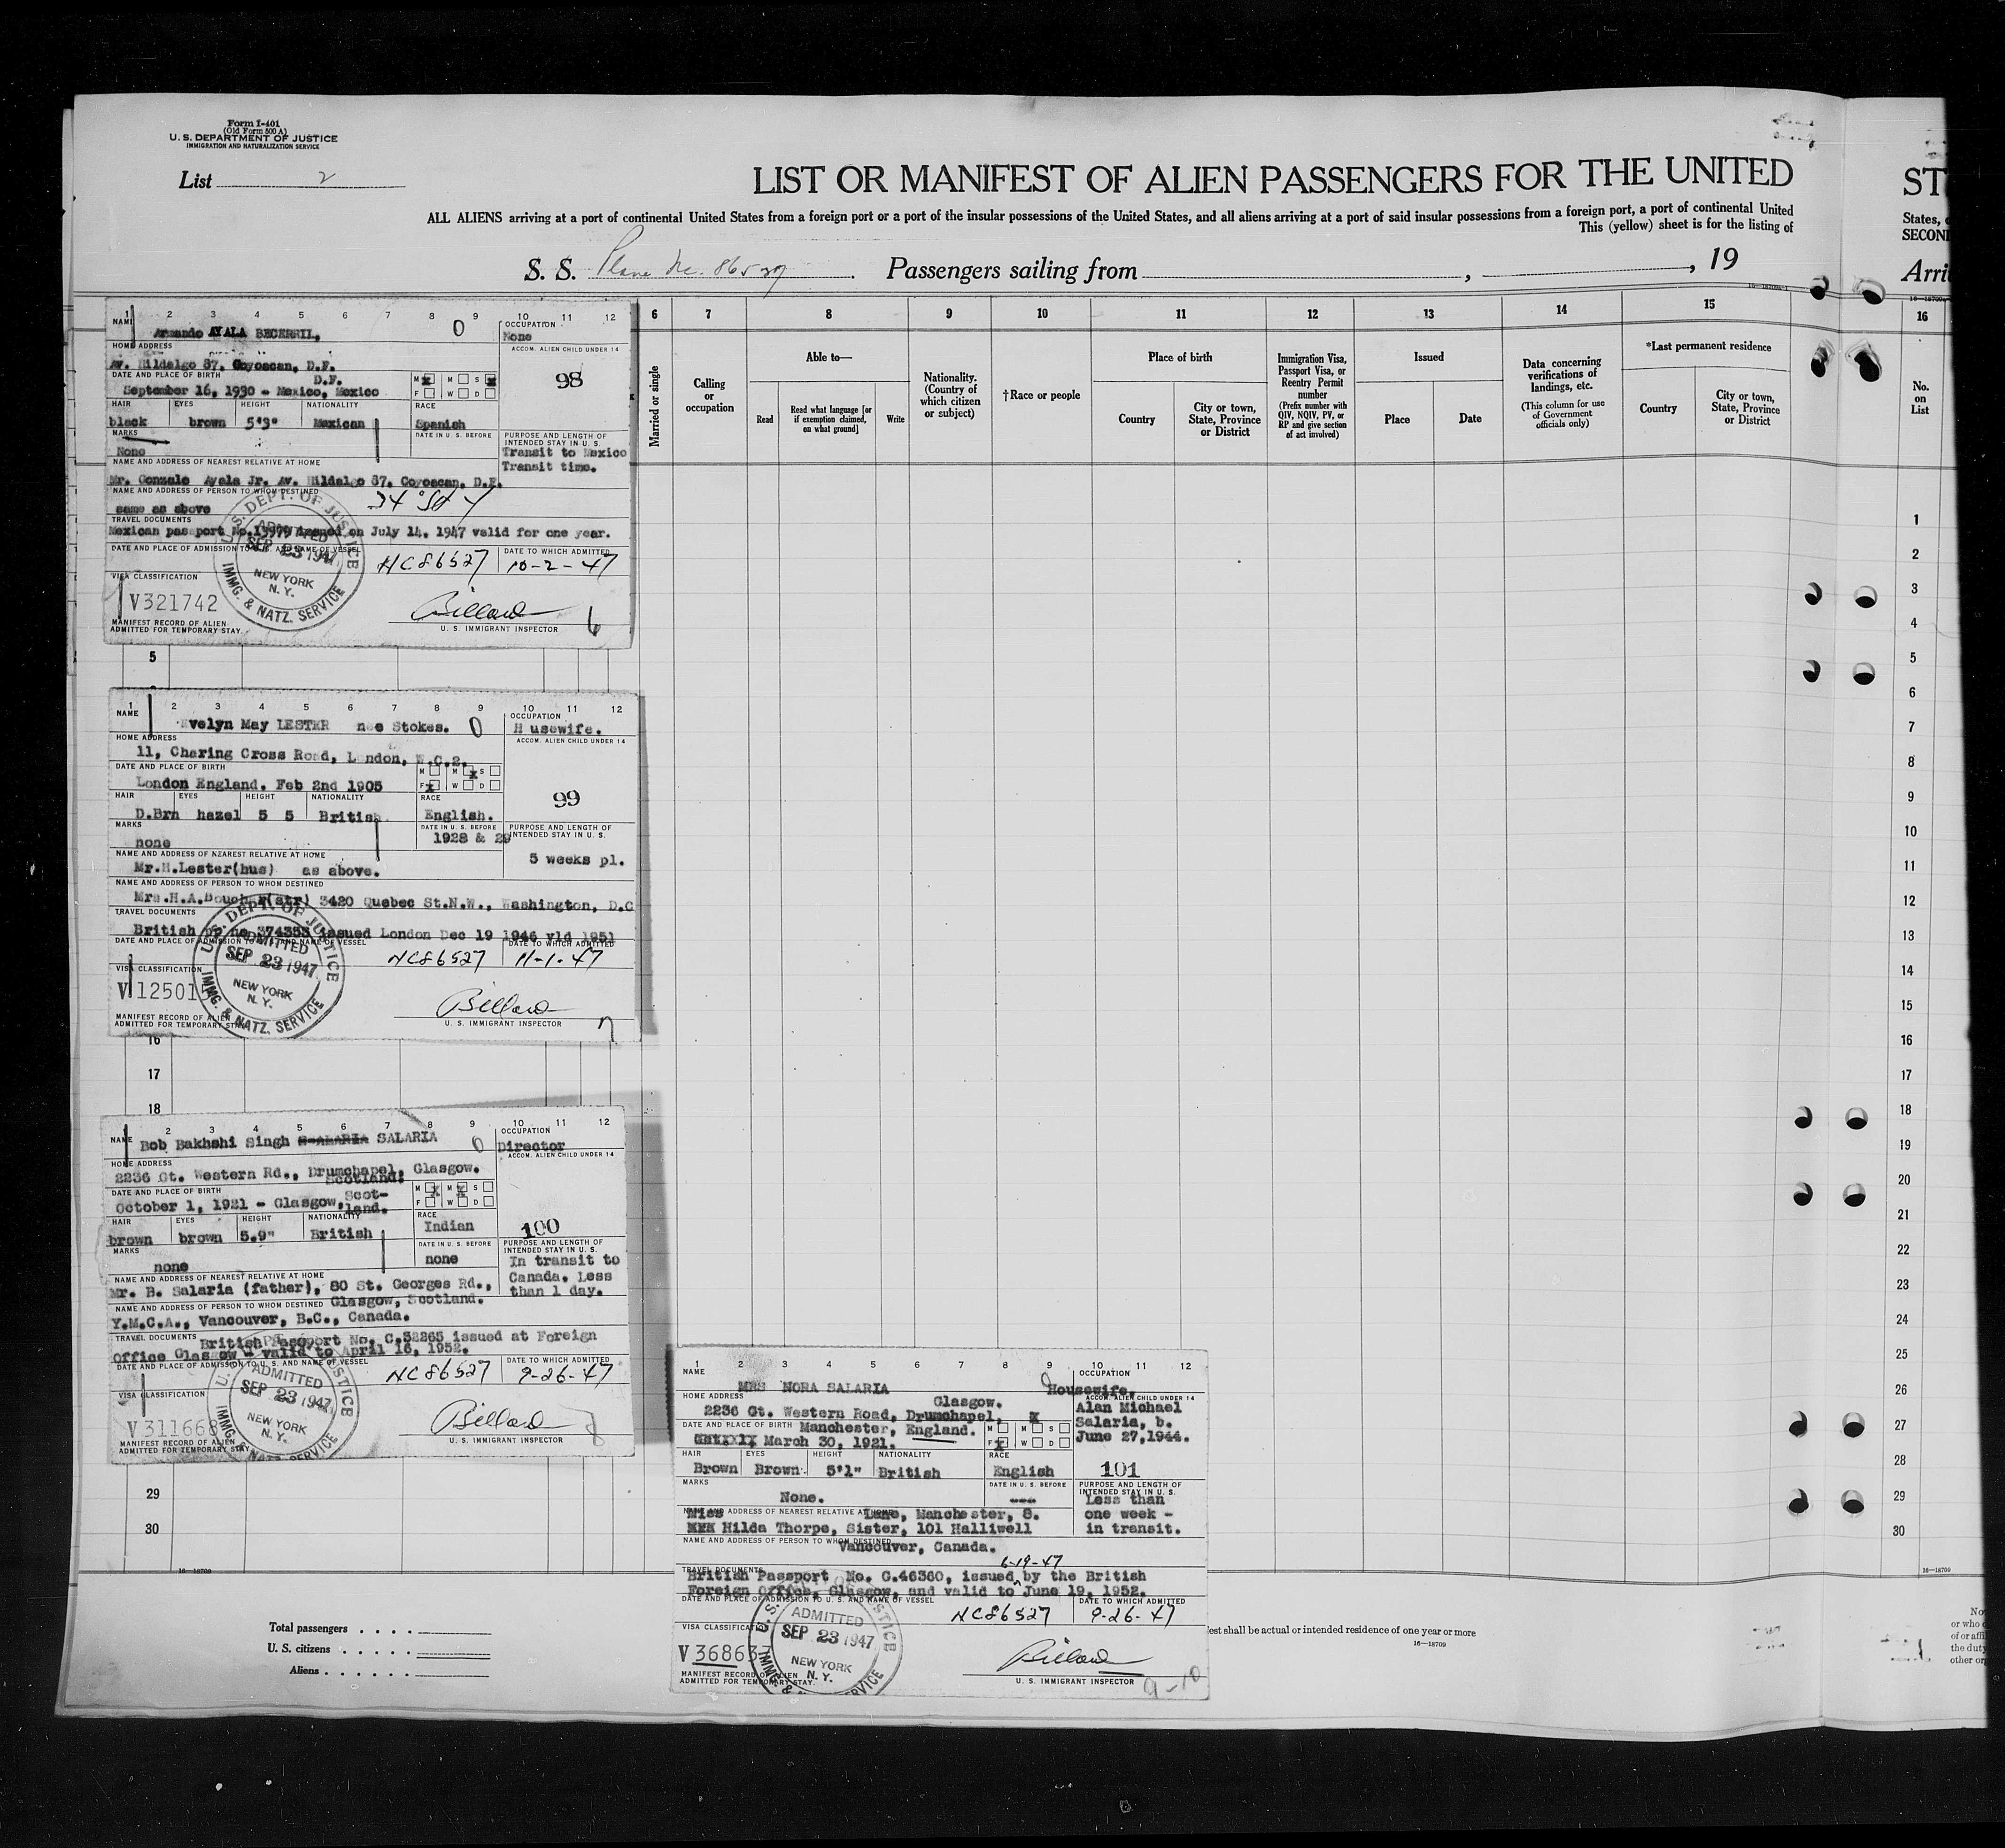 Form I-401
(Old Form 500 A)
U. S. DEPARTMENT OF JUSTICE
IMMIGRATION AND NATURALIZATION SERVICE
List 2
LIST OR MANIFEST OF ALIEN PASSENGERS FOR THE UNITED
ST
ALL ALIENS arriving at a port of continental United States from a foreign port or a port of the insular possessions of the United States, and all aliens arriving at a port of said insular possessions from a foreign port, a port of continental United
States,
This (yellow) sheet is for the listing of
SECOND
S. S. Plane No. Passengers sailing from , , 19
Arri
1 2 3 4 5 6 7 8 9 10 11 12
NAME Armando AYALA BECERRIL, 0
OCCUPATION
None
HOME ADDRESS
ACCOM. ALIEN CHILD UNDER 14
Av. Hildalgo 87, Coyoacan, D.F.
98
DATE AND PLACE OF BIRTH D.F.
M M S
September 16, 1930 - Mexico, Mexico
F W D
HAIR EYES HEIGHT NATIONALITY RACE
black brown 5'3" Mexican Spanish
MARKS DATE IN U. S. BEFORE
None
PURPOSE AND LENGTH OF
INTENDED STAY IN U. S.
Transit to Mexico
Transit time.
NAME AND ADDRESS OF NEAREST RELATIVE AT HOME
Mr. Gonzalo Ayala Jr. Av. Hildalgo 87, Coyoacan, D.F.
NAME AND ADDRESS OF PERSON TO WHOM DESTINED
same as above
TRAVEL DOCUMENTS
Mexican passport No.13979 issued on July 14, 1947 valid for one year.
DATE AND PLACE OF ADMISSION TO U. S. AND NAME OF VESSEL
DATE TO WHICH ADMITTED
NC86527 10-2-47
U. S. DEPT. OF JUSTICE
ADMITTED
SEP 23 1947
NEW YORK
N. Y.
IMMG. & NATZ. SERVICE
VISA CLASSIFICATION
V321742
Billard
MANIFEST RECORD OF ALIEN
ADMITTED FOR TEMPORARY STAY.
U. S. IMMIGRANT INSPECTOR 6
5
1 2 3 4 5 6 7 8 9 10 11 12
NAME Evelyn May LESTER nee Stokes. 0
OCCUPATION
H usewife.
HOME ADDRESS
ACCOM. ALIEN CHILD UNDER 14
11, Charing Cross Road, London, W.C.2.
DATE AND PLACE OF BIRTH
M M S
London England. Feb 2nd 1905
F W D
99
HAIR EYES HEIGHT NATIONALITY RACE
D.Brn hazel 5 5 British English.
MARKS DATE IN U. S. BEFORE
none 1928 & 29
PURPOSE AND LENGTH OF
INTENDED STAY IN U. S.
5 weeks pl.
NAME AND ADDRESS OF NEAREST RELATIVE AT HOME
Mr.H.Lester(hus) as above.
NAME AND ADDRESS OF PERSON TO WHOM DESTINED
Mrs.H.A.Boucher(str) 3420 Quebec St.N.W., Washington, D.C
TRAVEL DOCUMENTS
British pp no 374353 issued London Dec 19 1946 vld 1951
DATE AND PLACE OF ADMISSION TO U. S. AND NAME OF VESSEL
DATE TO WHICH ADMITTED
NC86527 11-1-47
U. S. DEPT. OF JUSTICE
ADMITTED
SEP 23 1947
NEW YORK
N. Y.
IMMG. & NATZ. SERVICE
VISA CLASSIFICATION
V125015
Billard
MANIFEST RECORD OF ALIEN
ADMITTED FOR TEMPORARY STAY.
U. S. IMMIGRANT INSPECTOR 7
16
17
18
1 2 3 4 5 6 7 8 9 10 11 12
NAME Bob Bakhshi Singh SALARIA 0
OCCUPATION
Director
HOME ADDRESS
ACCOM. ALIEN CHILD UNDER 14
2236 Gt. Western Rd., Drumchapel, Glasgow.
Scotland.
DATE AND PLACE OF BIRTH
M M S
October 1, 1921 - Glasgow, Scot-
land.
F W D
100
HAIR EYES HEIGHT NATIONALITY RACE
brown brown 5.9" British Indian
MARKS DATE IN U. S. BEFORE
none none
PURPOSE AND LENGTH OF
INTENDED STAY IN U. S.
In transit to
Canada. Less
than 1 day.
NAME AND ADDRESS OF NEAREST RELATIVE AT HOME
Mr. B. Salaria (father), 80 St. Georges Rd.,
NAME AND ADDRESS OF PERSON TO WHOM DESTINED Glasgow, Scotland.
Y.M.C.A., Vancouver, B.C., Canada.
TRAVEL DOCUMENTS British Passport No. C.32265 issued at Foreign
Office Glasgow - valid to April 16, 1952.
DATE AND PLACE OF ADMISSION TO U. S. AND NAME OF VESSEL
DATE TO WHICH ADMITTED
NC86527 9-26-47
ADMITTED
SEP 23 1947
NEW YORK
N. Y.
IMMG. & NATZ. SERVICE
VISA CLASSIFICATION
V311668
Billard
MANIFEST RECORD OF ALIEN
ADMITTED FOR TEMPORARY STAY
U. S. IMMIGRANT INSPECTOR 8
29
30
16—18709
Total passengers
U. S. citizens
Aliens
6 7 8 9 10 11 12 13 14 15 16
Married or single
Calling
or
occupation
Able to—
Read
Read what language [or
if exemption claimed,
on what ground]
Write
Nationality.
(Country of
which citizen
or subject)
†Race or people
Place of birth
Country
City or town,
State, Province
or District
Immigration Visa,
Passport Visa, or
Reentry Permit
number
(Prefix number with
QIV, NQIV, PV, or
RP and give section
of act involved)
Issued
Place
Date
Data concerning
verifications of
landings, etc.
(This column for use
of Government
officials only)
*Last permanent residence
Country
City or town,
State, Province
or District
No.
on
List
1
2
3
4
5
6
7
8
9
10
11
12
13
14
15
16
17
18
19
20
21
22
23
24
25
26
27
28
29
30
16—18709
1 2 3 4 5 6 7 8 9 10 11 12
NAME MRS NORA SALARIA 0
OCCUPATION
Housewife.
HOME ADDRESS Glasgow.
ACCOM. ALIEN CHILD UNDER 14
2236 Gt. Western Road, Drumchapel, X
Alan Michael
Salaria, b.
June 27,1944.
DATE AND PLACE OF BIRTH Manchester, England.
M M S
March 30, 1921.
F W D
HAIR EYES HEIGHT NATIONALITY RACE
Brown Brown 5'1" British English
101
MARKS DATE IN U. S. BEFORE
None. ---
PURPOSE AND LENGTH OF
INTENDED STAY IN U. S.
Less than
one week -
in transit.
NAME AND ADDRESS OF NEAREST RELATIVE AT Lane, Manchester, 8.
Miss Hilda Thorpe, Sister, 101 Halliwell
NAME AND ADDRESS OF PERSON TO WHOM DESTINED
Vancouver, Canada.
6-19-47
TRAVEL DOCUMENTS
British Passport No. C.46360, issued by the British
Foreign Office, Glasgow, and valid to June 19, 1952.
DATE AND PLACE OF ADMISSION TO U. S. AND NAME OF VESSEL
DATE TO WHICH ADMITTED
NC86527 9-26-47
ADMITTED
SEP 23 1947
NEW YORK
N. Y.
VISA CLASSIFICATION
V368637
Billard
MANIFEST RECORD OF ALIEN
ADMITTED FOR TEMPORARY STAY.
U. S. IMMIGRANT INSPECTOR 9-10
est shall be actual or intended residence of one year or more
16—18709
No
or who
of or affi
the duty
other or